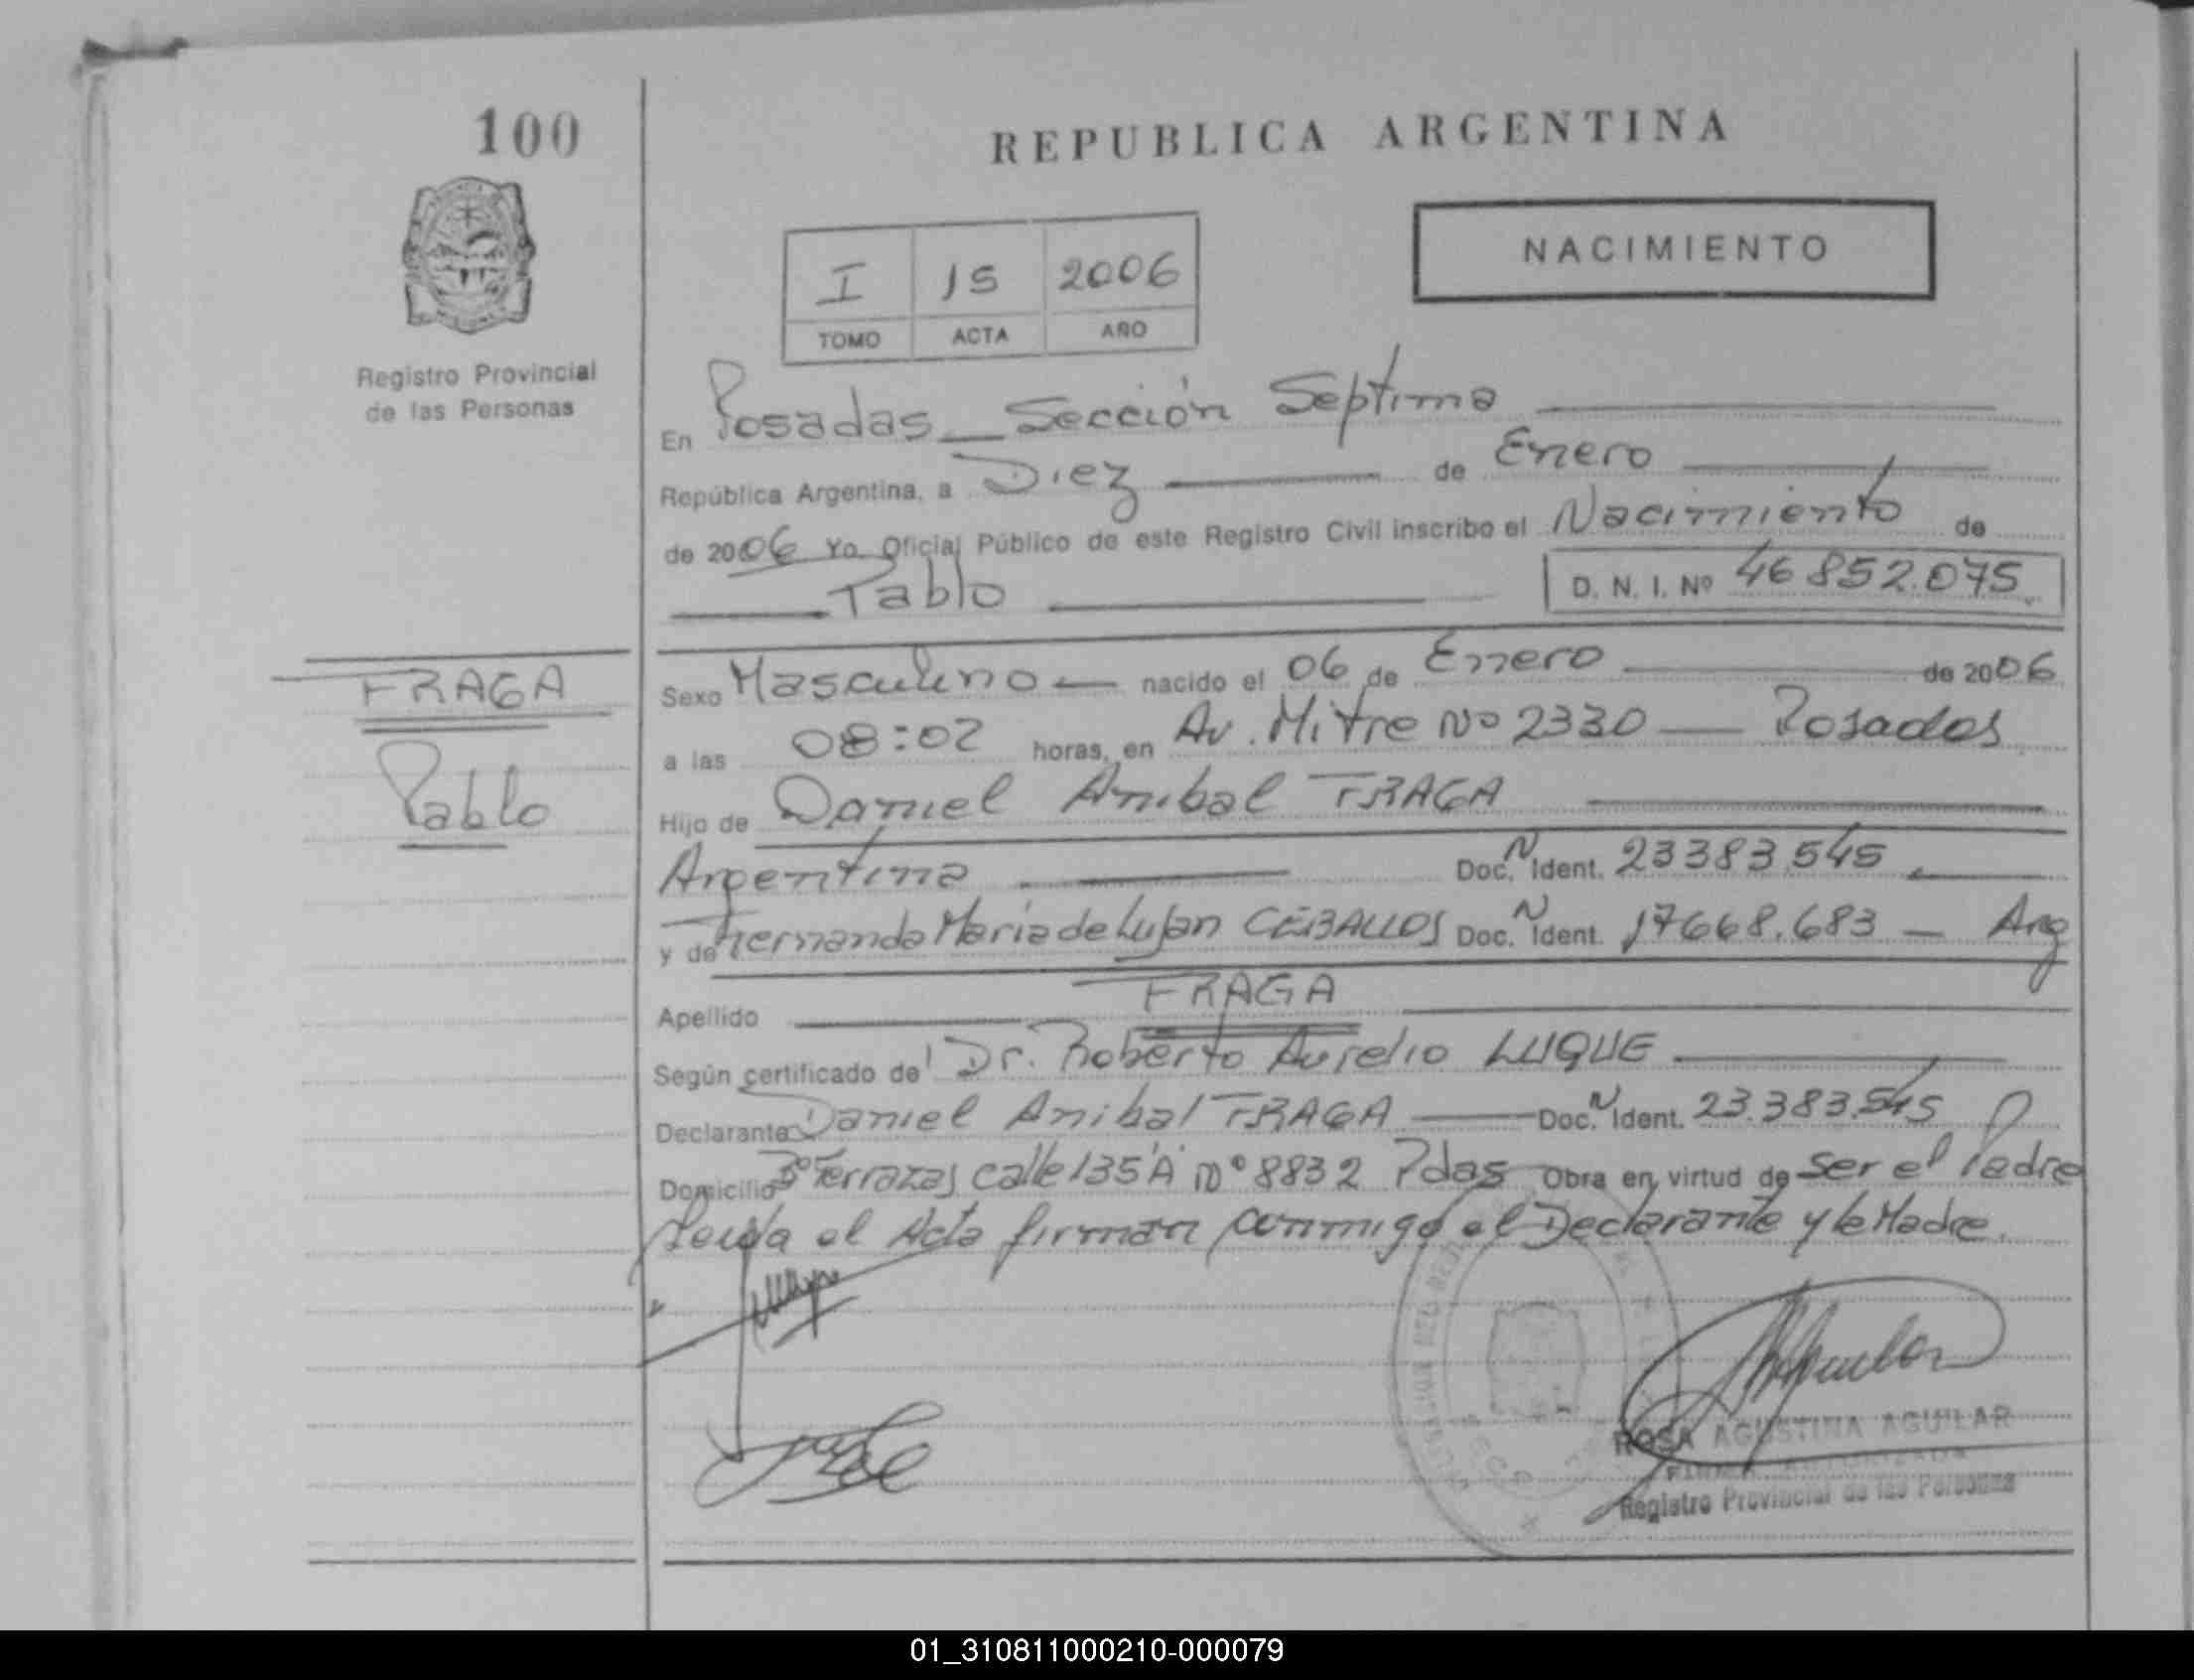 100
REPUBLICA ARGENTINA
NACIMIENTO
I 15 2006
TOMO ACTA AÑO
Registro Provincial
de las Personas
En Posadas — Sección Septima
República Argentina, a Diez de Enero
de 2006 Yo Oficial Público de este Registro Civil inscribo el Nacimiento de
Pablo D. N. I. Nº 46852.075
FRAGA
Pablo
Sexo Masculino — nacido el 06 de Enero de 2006
a las 08:02 horas, en Av. Mitre Nº 2330 — Posadas
Hijo de Daniel Anibal FRAGA
Argentina Doc. N Ident. 23383.545
y de Fernanda Maria de Lujan CEBALLOS Doc. N Ident. 17668.683 — Arg
Apellido FRAGA
Según certificado de Dr. Roberto Aurelio LUQUE
Declarante Daniel Anibal FRAGA — Doc. N Ident. 23.383.545
Domicilio Bº Terrazas calle 135 "A" Nº 8832 Pdas Obra en virtud de ser el Padre
Leida el Acta firman conmigo el Declarante y la Madre.
ROSA AGUSTINA AGUILAR
FIRMA AUTORIZADA
Registro Provincial de las Personas
01_310811000210-000079